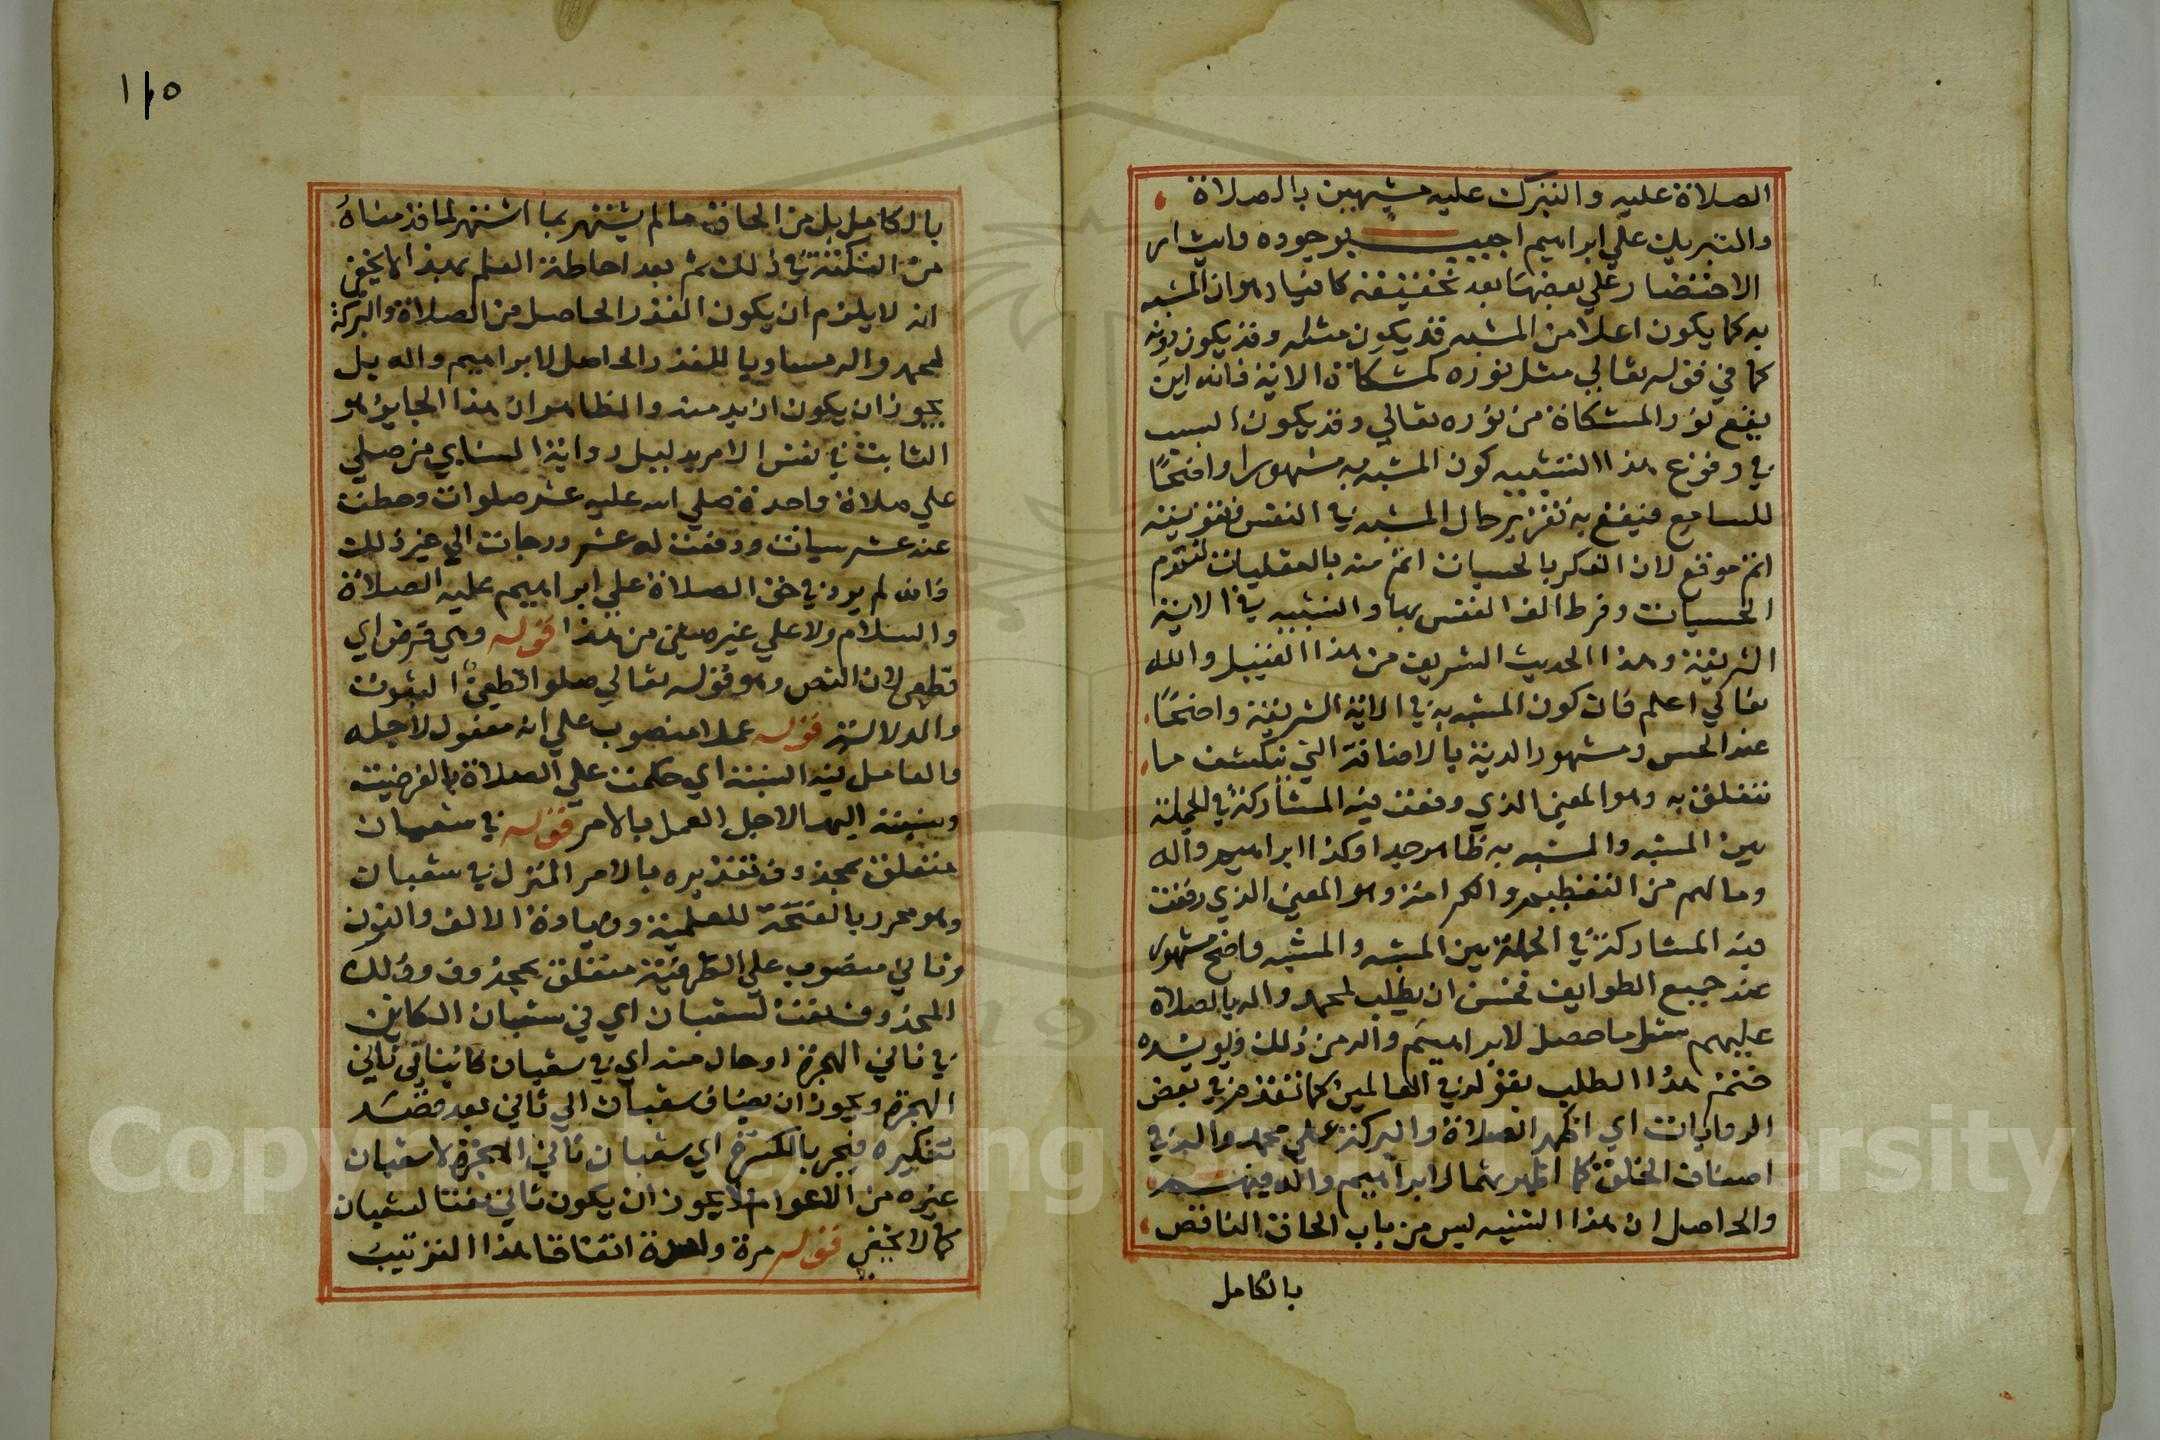 الصلاة عليه والتبرك عليه مشبهين بالصلاة
والتبريك علي ابراهيم اجيب بوجوه وايثار
الاختصار علي بعضها بعد تحقيقه كافيا وهو ان المشبه
به كما يكون اعلا من المشبه قد يكون مثله وقد يكون دونه
كما في قوله تعالي مثل نوره كمشكاة الاية فانه اين
يقع نور المشكاة من نوره تعالي وقد يكون السبب
في وقوع هذا التشبيه كون المشبه به مشهورا واضحًا
للسامع فيقع به تقرير حال المشبه في النفس وتقويته
اتم موقع لان الفكر بالحسيات اتم منه بالعقليات لتقدم
الحسيات وفرط الف النفس بها والتشبيه في الاية
الشريفة وهذا الحديث الشريف من هذا القبيل والله
تعالي اعلم فان كون المشبه به في الاية الشريفة واضحًا
عند الحس ومشهور الدية بالاضافة التي تنكشف ما
تتعلق به وهو المعني الذي وقعت فيه المشاركة في الجملة
بين المشبه والمشبه به ظاهر جدا وكذا ابراهيم وآله
وما لهم من التعظيم والكرامة وهو المعني الذي وقعت
فيه المشاركة في الجملة بين المشبه والمشبه واضح مشهور
عند جميع الطوايف فحسن ان يطلب لمحمد واله بالصلاة
عليهم مثل ما حصل لابراهيم وآله من ذلك ويويده
ختم هذا الطلب بقوله في العالمين كما تقدم في بعض
الروايات اي اظهر الصلاة والبركة علي محمد واله في
اصناف الخلق كما اظهرتهما لابراهيم وآله فيهم
والحاصل ان هذا التشبيه ليس من باب الحاق الناقص
بالكامل
١١٥
بالكامل بل من الحاق ما لم يشتهر بما اشتهر لما قدمناه
من النكتة في ذلك ثم بعد احاطة العلم بهذا لا يخفي
انه لا يلزم ان يكون القدر الحاصل من الصلاة والبركة
لمحمد واله مساويا للقدر الحاصل لابراهيم واله بل
يجوز ان يكون ازيد منه والظاهر ان هذا الجايز هو
الثابت في نفس الامر بدليل رواية النساي من صلي
علي صلاة واحدة صلي الله عليه عشر صلوات وحطت
عنه عشر سيات ورفعت له عشر درجات الي غير ذلك
وانه لم يرد في حق الصلاة علي ابراهيم عليه الصلاة
والسلام ولا علي غيره شيئ من هذا قوله وهي فرض اي
قطعي لان النص وهو قوله تعالي صلوا قطعيّ الثبوت
والدلالة قوله عملا منصوب علي انه مفعول لاجله
والعامل فيه النسبة اي حكمت علي الصلاة بالفرضية
ونسبته اليها لاجل العمل بالامر قوله في شعبان
متعلق بمحذوف تقديره بالامر المنزل في شعبان
وهو مجرور بالفتحة للعلمية وزيادة الالف والنون
وثاني منصوب علي الظرفية متعلق بمحذوف وذلك
المحذوف نعت لشعبان اي في شعبان الكاين
في ثاني الهجرة او حال منه اي في شعبان كاينا في ثاني
الهجرة ويجوز ان يضاف شعبان الي ثاني بعد قصد
تنكيره فيجر بالكسرة اي شعبان ثاني الهجرة لا شعبان
غيره من الاعوام ولا يجوز ان يكون ثاني نعتا لشعبان
كما لا يخفي قوله مرة واحدة اتفاقا هذا الترتيب